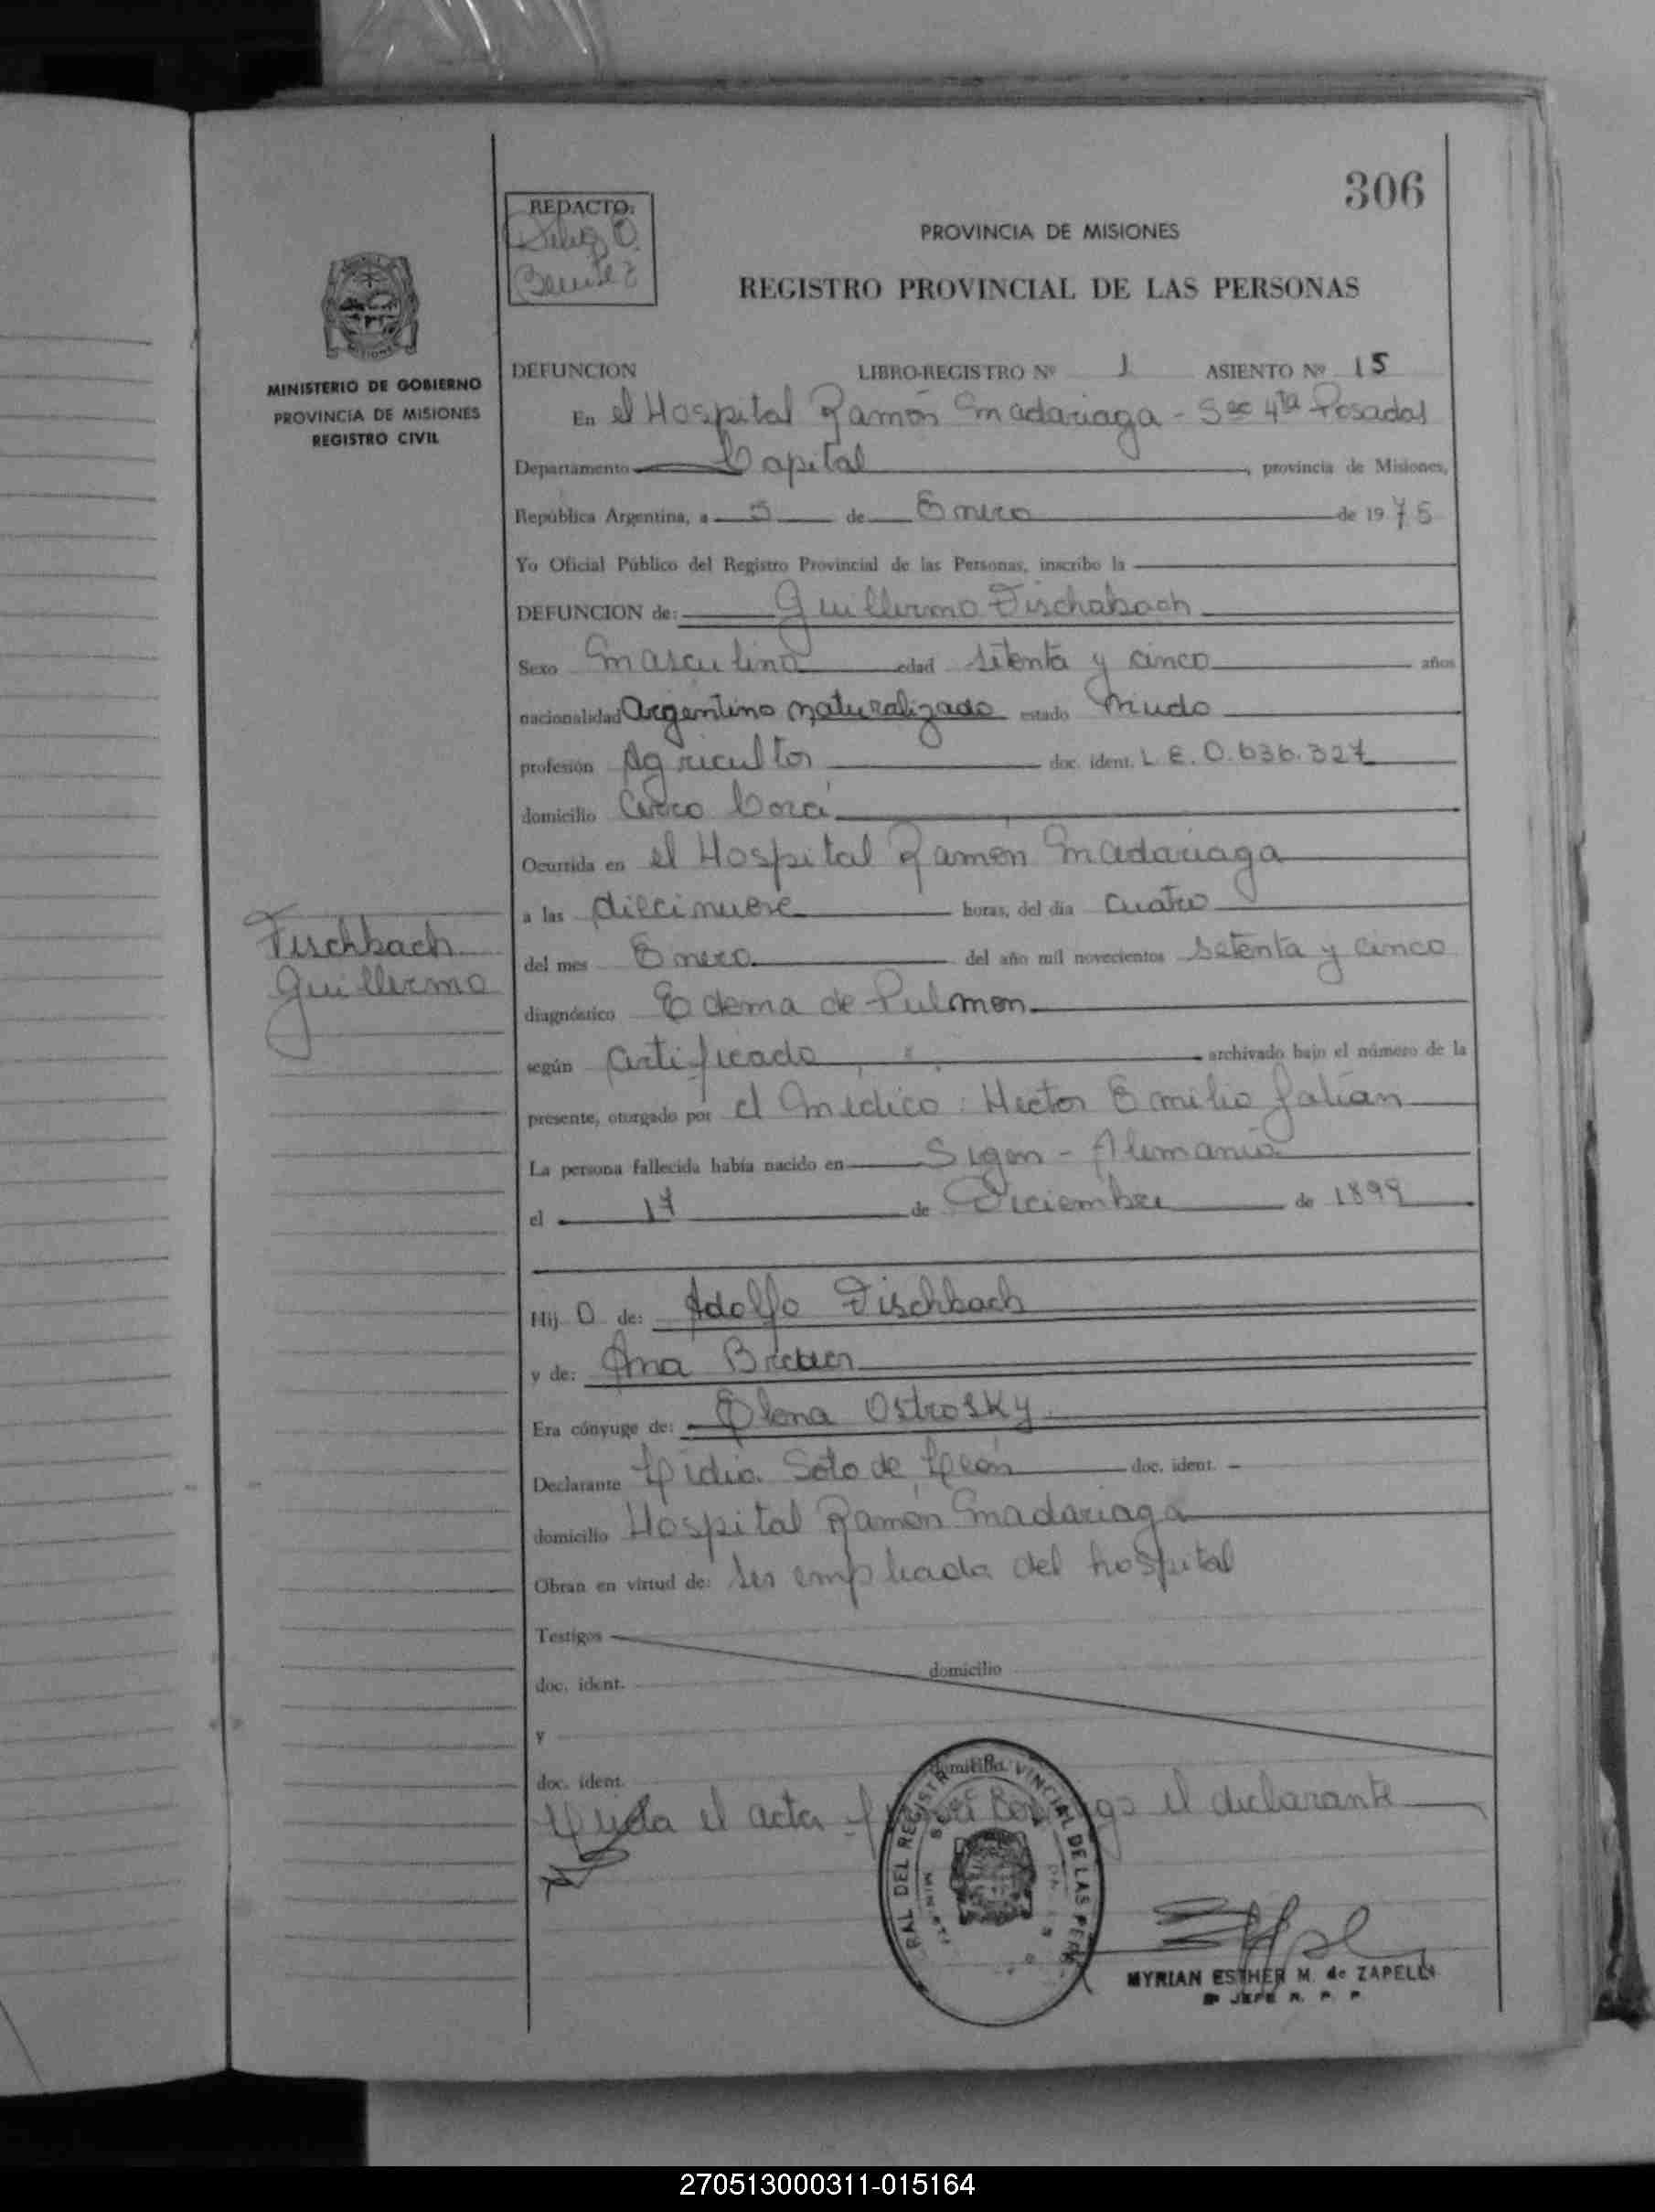 306
REDACTO:
Benitez
PROVINCIA DE MISIONES
REGISTRO PROVINCIAL DE LAS PERSONAS
MINISTERIO DE GOBIERNO
PROVINCIA DE MISIONES
REGISTRO CIVIL
DEFUNCION LIBRO-REGISTRO Nº 1 ASIENTO Nº 15
En el Hospital Ramón Madariaga - Sec 4ta Posadas
Departamento Capital, provincia de Misiones,
República Argentina, a 5 de Enero de 1975
Yo Oficial Público del Registro Provincial de las Personas, inscribo la
DEFUNCION de: Guillermo Fischabach
Sexo Masculino edad setenta y cinco años
nacionalidad Argentino naturalizado estado Viudo
profesión Agricultor doc. ident. L.E. 0.636.327
domicilio Cerro Corá
Ocurrida en el Hospital Ramón Madariaga
a las diecinueve horas, del día cuatro
Fischbach
Guillermo
del mes Enero del año mil novecientos setenta y cinco
diagnóstico Edema de Pulmon
según Certificado archivado bajo el número de la
presente, otorgado por el Medico: Hector Emilio Galian
La persona fallecida había nacido en Sigen - Alemania
el 17 de Diciembre de 1899
Hij O de: Adolfo Fischbach
y de: Ana
Era cónyuge de: Elena Ostrosky
Declarante Lidia Soto de León doc. ident. -
domicilio Hospital Ramón Madariaga
Obran en virtud de: ser empleada del hospital
Testigos
doc. ident. domicilio
y
doc. ident. domicilio
Leida el acta el declarante
MYRIAN ESTHER M. de ZAPELLI
JEFE R. P. P.
270513000311-015164